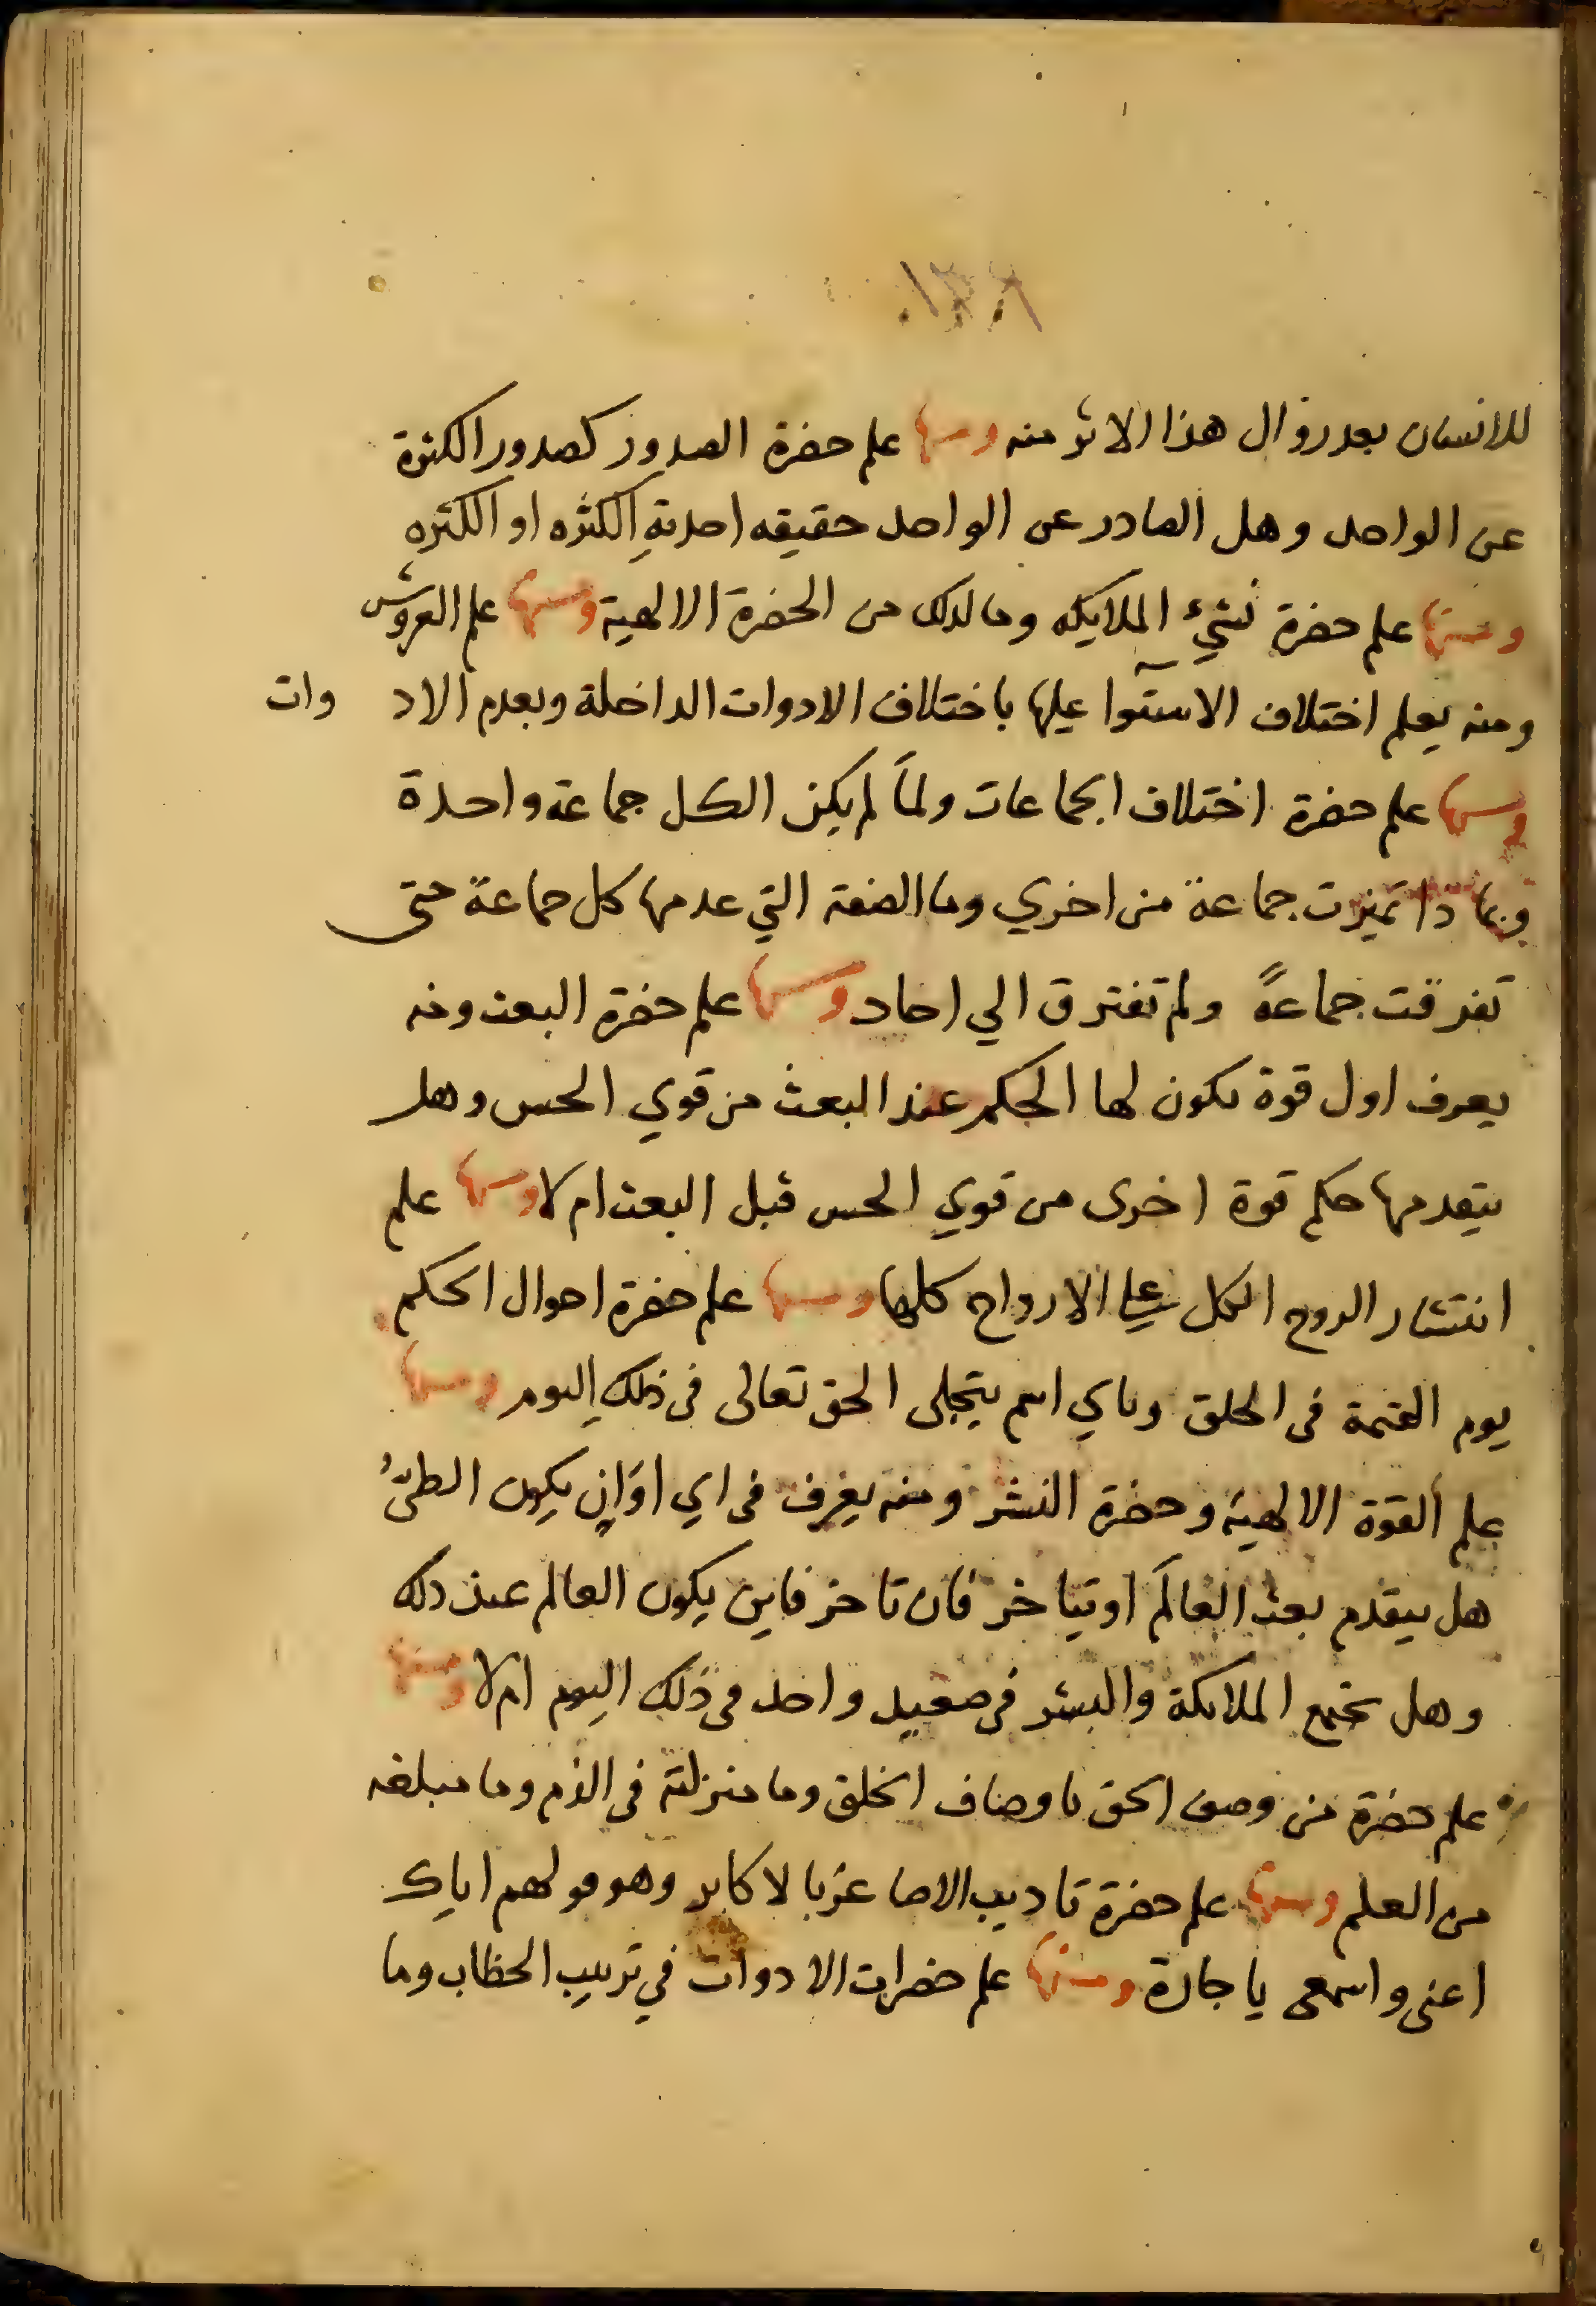 للانسان بعد زوال هذا الاثر منه ومنها علم حضرة الصدور كصدور الكثرة
عن الواحد وهل الصادر عن الواحد حقيقه احدية الكثره او الكثره
ومنها علم حضرة نشئ الملايكه وما لذلك من الحضرة الالهية ومنها علم العروش
ومنه يعلم اختلاف الاستوا عليها باختلاف الادوات الداخلة وبعدم الاد وات
ومنها علم حضرة اختلاف الجماعات ولما لم يكن الكل جماعة واحدة
وبما ذا تميزت جماعة من اخري وما الصفة التي عدمها كل جماعة حتى
تفرقت جماعةً ولم تفترق الي احاد ومنها علم حضرة البعث ومنه
يعرف اول قوة تكون لها الحكم عند البعث من قوي الحس وهل
يتقدمها حكم قوة اخرى من قوي الحس قبل البعث ام لا ومنها علم
انتشار الروح الكل علي الارواح كلها ومنها علم حضرة احوال الحكم
يوم القيمة في الخلق وباي اسم يتجلى الحق تعالى في ذلك اليوم ومنها
علم القوة الالهية وحضرة النشر ومنه يعرف في اي اوان يكون الطيّ
هل يتقدم بعث العالم او يتاخر فان تاخر فاين يكون العالم عند ذلك
وهل تجتمع الملائكة والبشر في صعيد واحد في ذلك اليوم ام لا ومنها
علم حضرة من وصف الحق باوصاف الخلق وما منزلته في الذم وما مبلغه
من العلم ومنها علم حضرة تاديب الاصاغر بالاكابر وهو قولهم اياك
اعني واسمعي يا جارة ومنها علم حضرات الادوات في ترتيب الخطاب وما